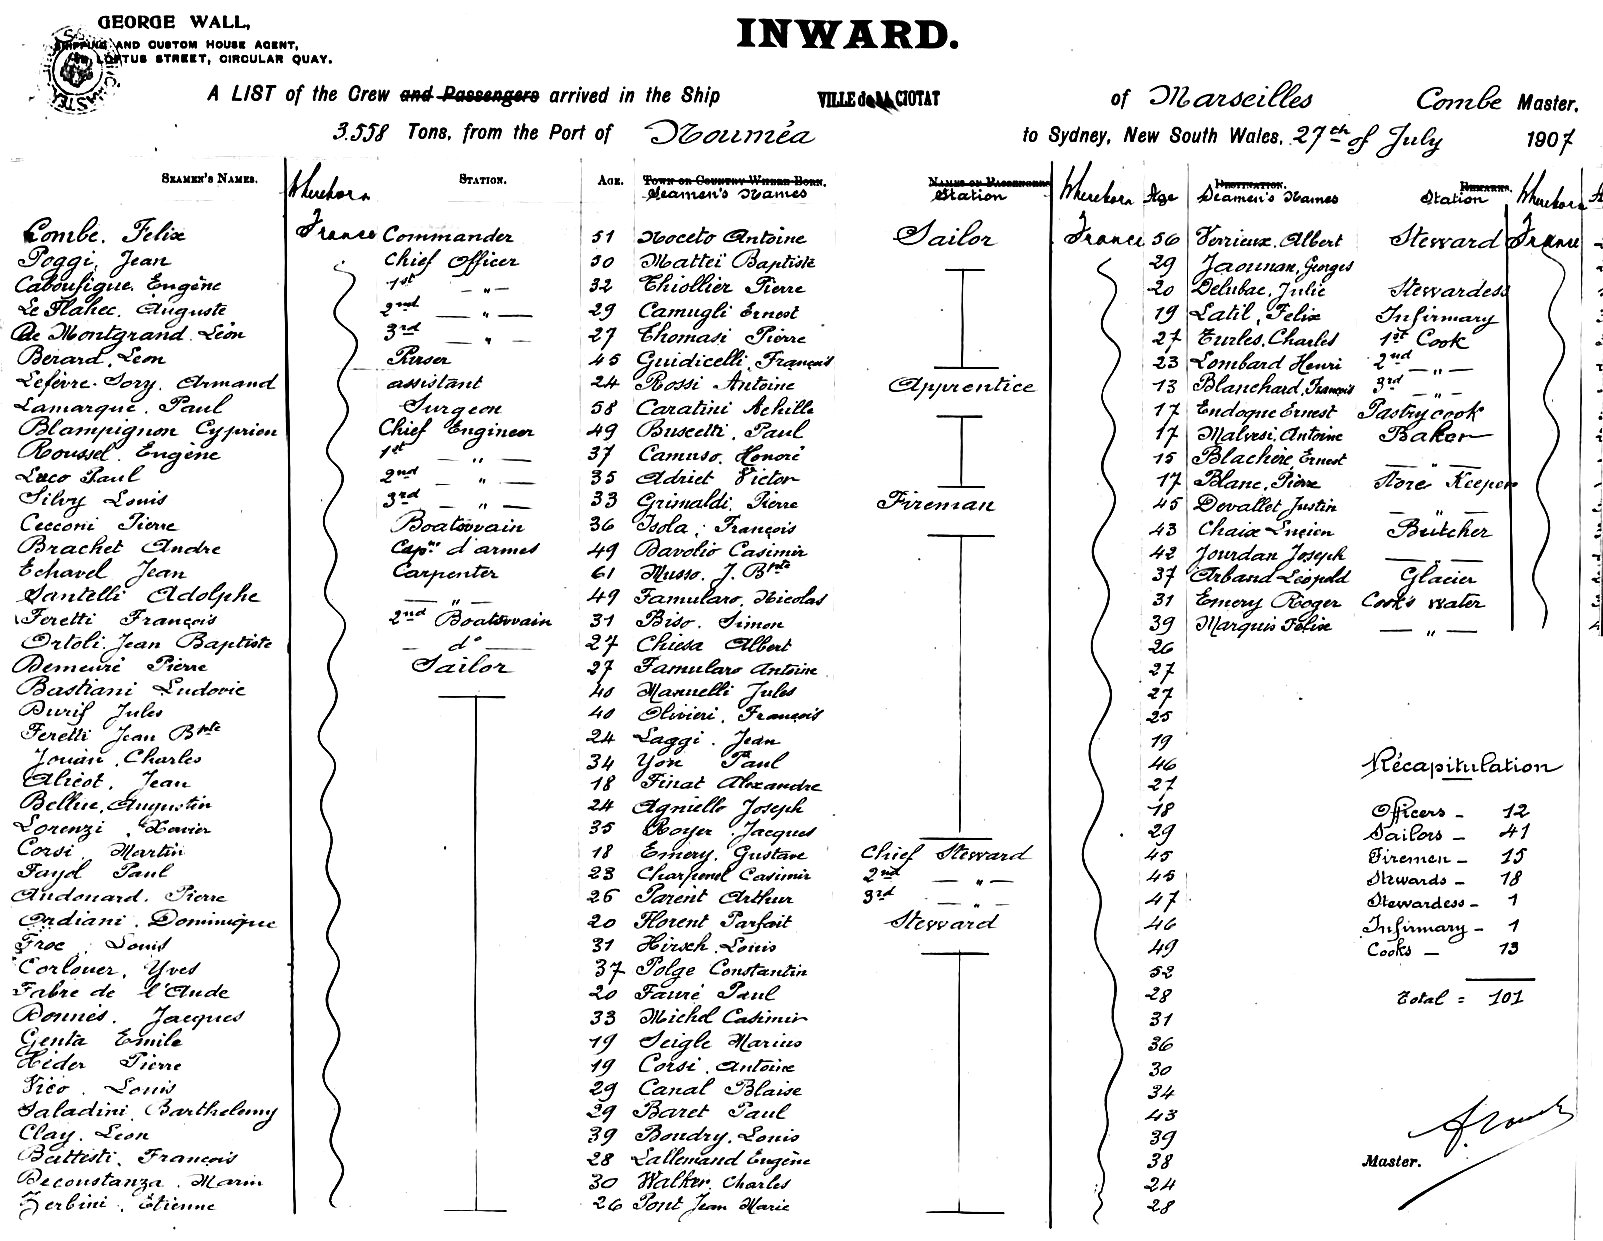 GEORGE WALL,
SHIPPING AND CUSTOM HOUSE AGENT,
LOFTUS STREET, CIRCULAR QUAY.
INWARD.
A LIST of the Crew and Passengers arrived in the Ship VILLE de LA CIOTAT of Marseilles Combe Master,
3.558 Tons, from the Port of Nouméa to Sydney, New South Wales, 27th of July 1907
SEAMEN'S NAMES. Whereborn STATION. AGE. TOWN OR COUNTRY WHERE BORN. NAMES OF PASSENGERS Whereborn Age DESTINATION. REMARKS. Whereborn
Seamen's Names Station Seamen's Names Station
Combe. Felix France Commander 51 Noceto Antoine Sailor France 56 Verrieux, Albert Steward France
Poggi, Jean Chief Officer 50 Mattei Baptiste 29 Jaounan, Georges
Caboufigue, Eugène 1st — „ — 32 Thiollier Pierre 20 Delubac, Julie Stewardess
Le Flahec. Auguste 2nd — „ — 29 Camugli Ernest 19 Latil, Felix Infirmary
De Montgrand Léon 3rd — „ — 27 Thomasi Pierre 27 Turles, Charles 1st Cook
Berard, Leon Purser 45 Guidicelli, François 23 Lombard Henri 2nd — „ —
Lefèvre. Sory, Armand assistant 24 Rossi Antoine Apprentice 13 Blanchard, François 3rd — „ —
Lamarque. Paul Surgeon 58 Caratini Achille 17 Endoque Ernest Pastrycook
Blampignon Cyprien Chief Engineer 49 Buscetti, Paul 17 Malvesi, Antoine Baker
Roussel. Eugène 1st — „ — 37 Camuso, Honoré 15 Blachère, Ernest — „ —
Luco Paul 2nd — „ — 35 Adriet Victor 17 Blanc, Pierre Store Keeper
Silvy Louis 3rd — „ — 33 Grimaldi, Pierre Fireman 45 Devallet Justin — „ —
Cecconi Pierre Boatswain 36 Isola, François 43 Chaix Lucien Butcher
Brachet Andre Cap.ne d'armes 49 Davolio Casimir 42 Jourdan Joseph — „ —
Echavel Jean Carpenter 61 Musso. J. Bnte 37 Arband Léopold Glacier
Santelli Adolphe — „ — 49 Famularo, Nicolas 31 Emery Roger Cook's Water
Feretti François 2nd Boatswain 31 Biso. Simon 39 Marquis Felix — „ —
Ortoli, Jean Baptiste — d° — 27 Chiesa Albert 26
Demeuré Pierre Sailor 27 Famularo Antoine 27
Bastiani Ludovic 40 Manuelli Jules 27
Burif Jules 40 Olivieri, François 25
Feretti Jean Bnte 24 Laggi. Jean 19
Jouan, Charles 34 Yon Paul 46 Récapitulation
Alicot, Jean 18 Finat Alexandre 27
Bellue, Augustin 24 Agniello Joseph 18 Officers - 12
Lorenzi, Xavier 35 Royer Jacques 29 Sailors - 41
Corsi, Martin 18 Emery, Gustave Chief Steward 45 Firemen - 15
Fayd Paul 23 Charpenel Casimir 2nd — „ — 45 Stewards - 18
Audouard. Pierre 26 Parent Arthur 3rd — „ — 47 Stewardess - 1
Ordiani. Dominique 20 Florent Parfait Steward 46 Infirmary - 1
Froc Louis 31 Hirsch, Louis 49 Cooks — 13
Corlouer, Yves 37 Polge Constantin 52
Fabre de l'Aude 20 Fauré Paul 28 Total = 101
Bonnes. Jacques 33 Michel Casimir 31
Genta Emile 19 Seigle Marius 36
Hider Pierre 19 Corsi. Antoine 30
Vico. Louis 29 Canal Blaise 34
Saladini, Barthelemy 29 Baret Paul 43
Clay. Leon 39 Boudry, Louis 39
Battesti, François 28 Lallemand Eugène 38 Master.
Deconstanza. Marin 30 Walker, Charles 24
Zerbini. Etienne 26 Pont Jean Marie 28